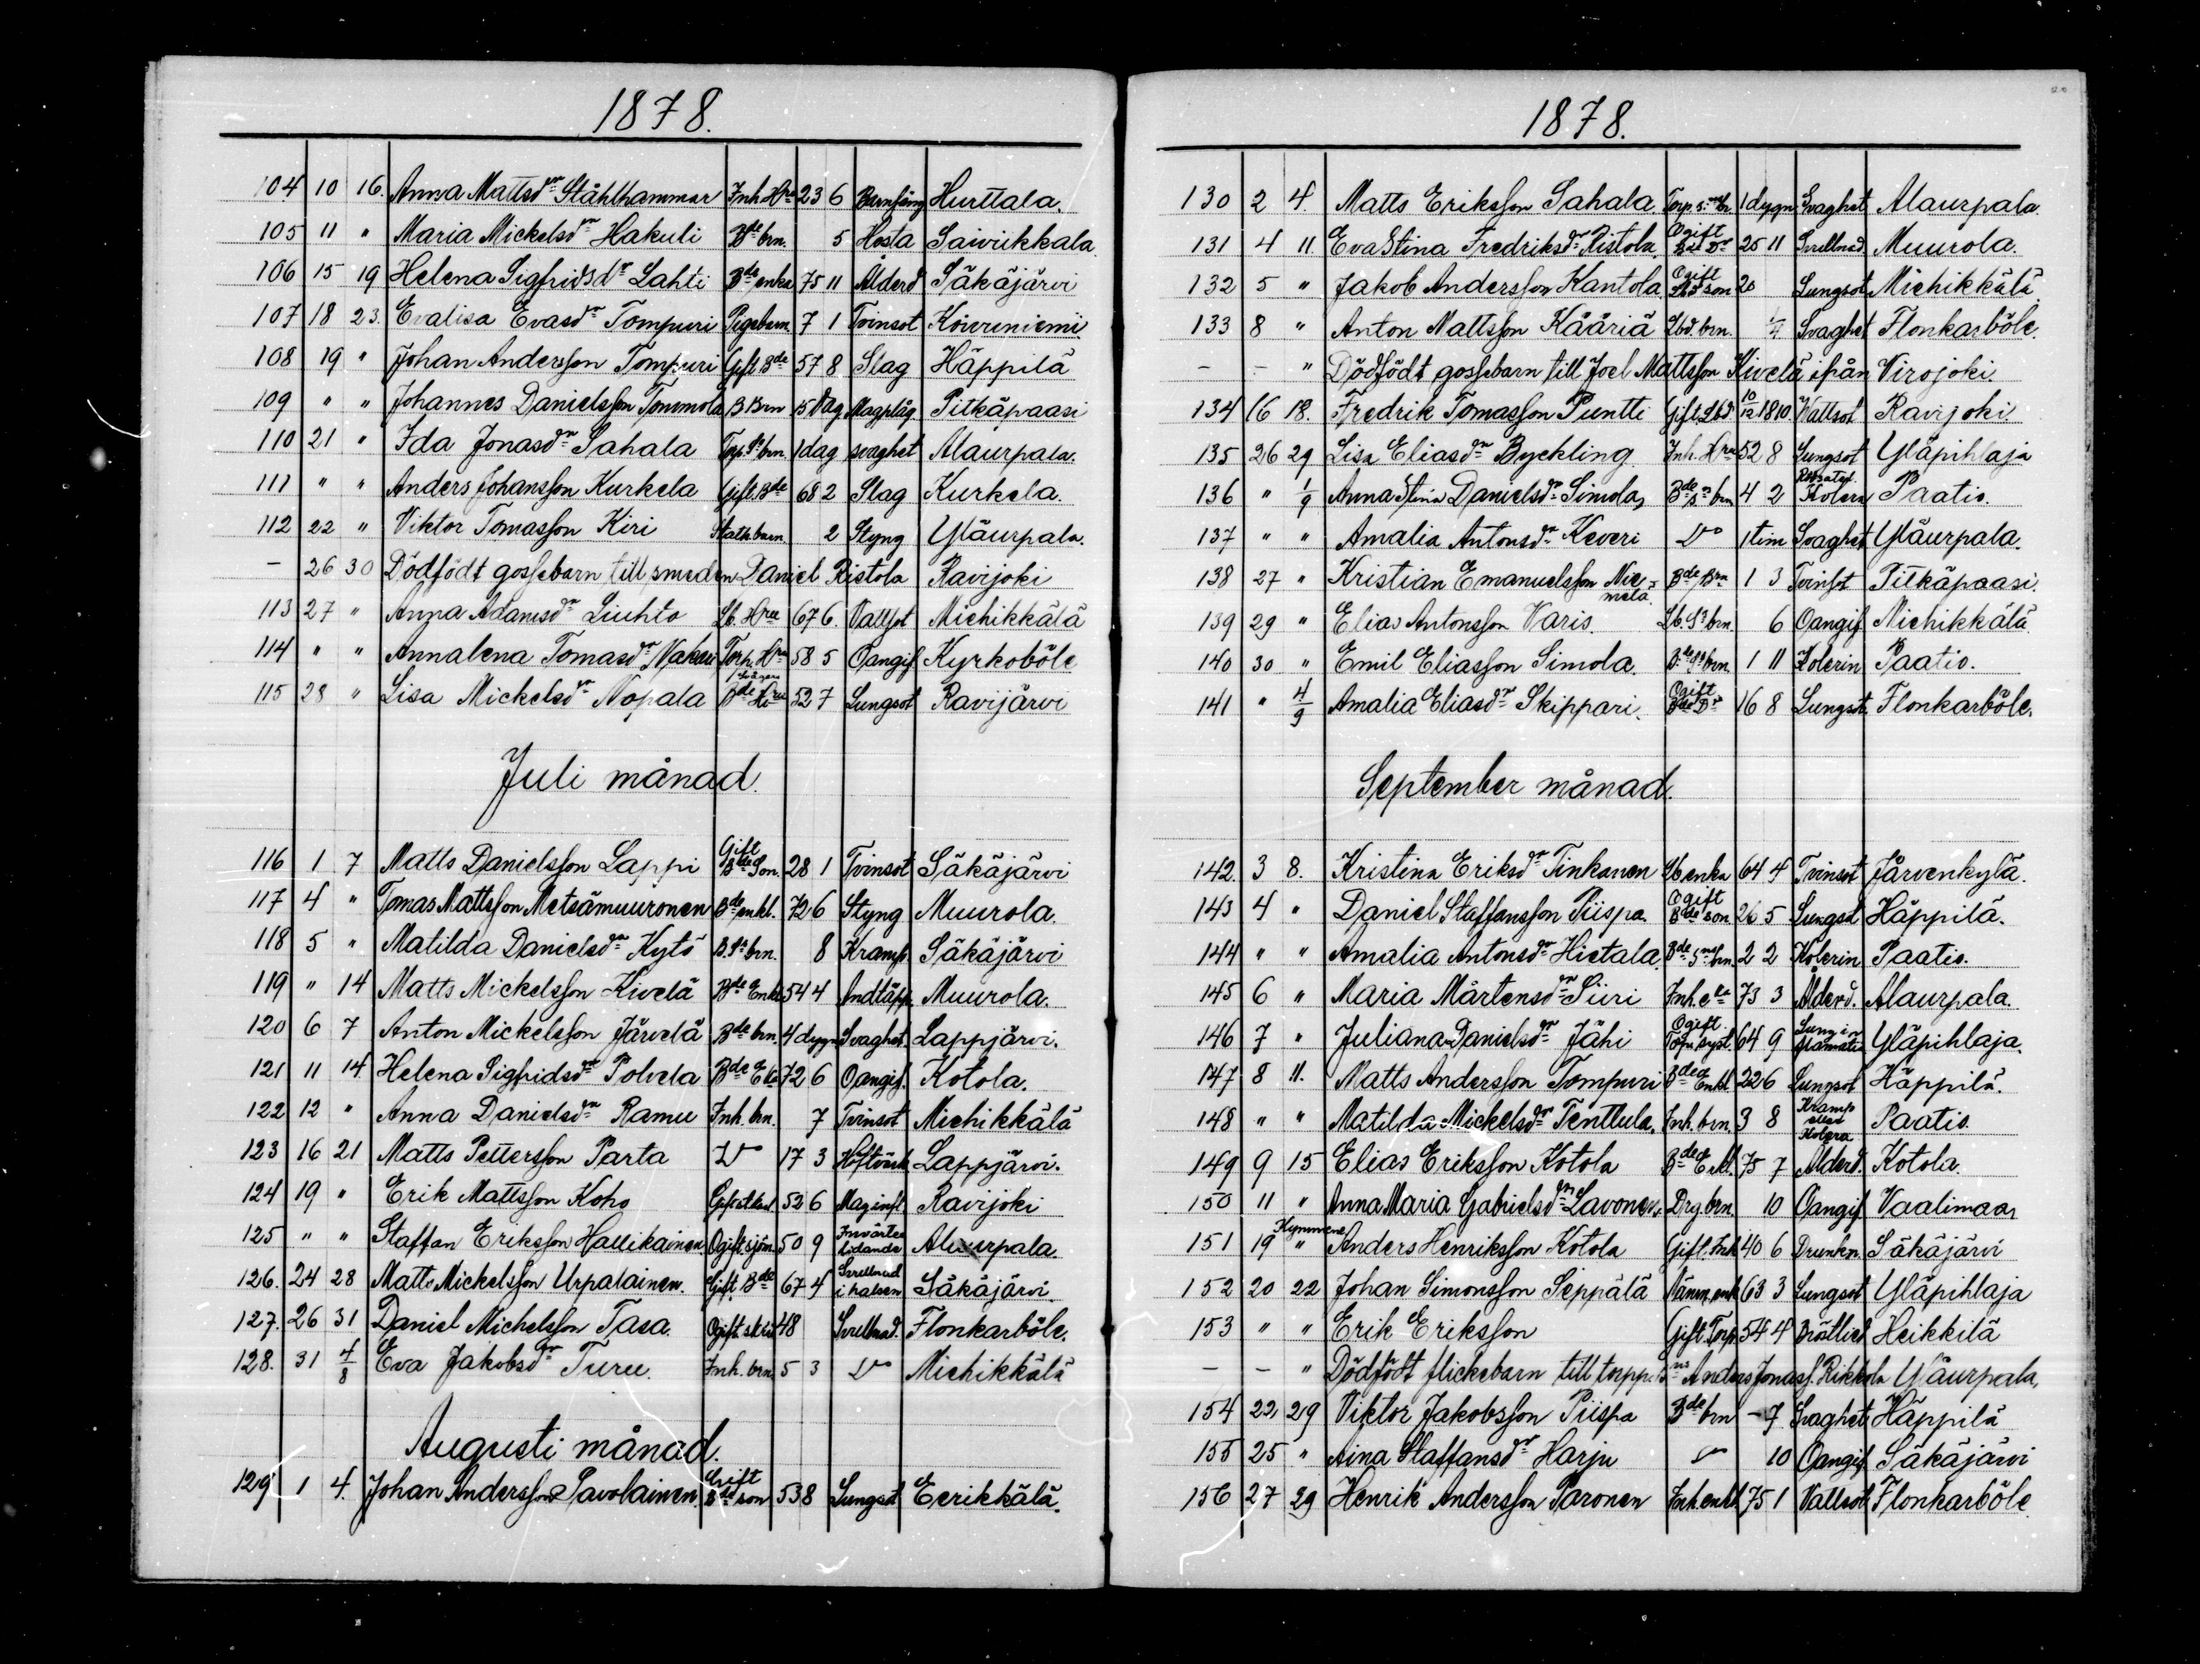 1878.
104 10 16. Anna Mattsdr Ståhlhammar Inh. Hru 23 6 Barnsäng Hurttala.
105 11 " Maria Mickelsdr Hakuli Bde brn. 5 Hosta Saivikkala
106 15 19 Helena Sigfridsdr Lahti Bde enka 75 11 Ålderd Säkäjärvi
107 18 23. Evalisa Evasdr Tompuri Pigebarn 7 1 Tvinsot Kouvuniemi
108 19 " Johan Andersson Tompuri Gift Bde 57 8 Slag Häppilä
109 " " Johannes Danielsson Tommola B. Brn 15 Dag Magplåg Pitkäpaasi
110 21 " Ida Jonasdr Sahala Torp. Ss brn. 1 dag svaghet Alaurpala.
111 " " Anders Johansson Kurkela Gift. Bde 68 2 Slag Kurkela.
112 22 " Viktor Tomasson Kiri Stath. barn. 2 Styng Yläurpala.
- 26 30 Dödfödt gossebarn till smeden Daniel Ristola Ravijoki
113 27 " Anna Adamsdr Liuhto Lb. Hru 67 6. Vattsot Michikkälä
114 " " Annalena Tomasdr Nakari Torp. Hru 58 5 Oangif Kyrkoböle
115 28 " Lisa Mickelsdr Nopala Bde Hru 52 7 Lungsot Ravijärvi
Juli månad.
116 1 7 Matts Danielsson Lappi Gift Bde Son. 28 1 Tvinsot Säkäjärvi
117 4 " Tomas Mattsson Metsämuuronen Bde enkl. 72 6 Styng Muurola.
118 5 " Matilda Danielsdr Kytö B. Ss brn. 8 Kramp. Säkäjärvi
119 " 14 Matts Mickelsson Kivelä Bde Enkl 54 4 Andtäpp. Muurola.
120 6 7 Anton Mickelsson Järvelä Bde brn. 4 dygn Svaghet. Lappjärvi.
121 11 14 Helena Sigfridsdr Polvela Bde Eka 72 6 Oangif. Kotola.
122 12 " Anna Danielsdr Ramu Inh. brn. 7 Tvinsot Michikkälä
123 16 21 Matts Pettersson Parta Do 17 3 Höftvärk Lappjärvi.
124 19 " Erik Mattsson Koho 52 6 Mag infl Ravijoki
125 " " Staffan Eriksson Hallikainen Ogift sjöm. 50 9 Invärtes lidande Alaurpala.
126. 24 28 Matts Mickelsson Urpalainen. Gift. Bde 67 4 Svullnad i halsen Säkäjärvi.
127. 26 31 Daniel Michelsson Tasa. Ogift. 48 Svullnad. Flonkarböle.
128. 31 4/8 Eva Jakobsdr Turu. Inh. brn. 5 3 Do Michikkälä
Augusti månad.
129 1 4. Johan Andersson Pavolainen Gift Bde son 53 8 Lungsot Eerikkälä.
1878.
130 2 4. Matts Eriksson Sahala. 1 dygn Svaghet Alaurpala.
131 4 11. Eva Stina Fredriksdr Ristola. Ogift Bde Dr 25 11 Svullnad. Muurola.
132 5 " Jakob Andersson Kantola. Ogift Lbd son 20 Lungsot Michikkälä
133 8 " Anton Mattsson Kääriä Lbd. brn. Svaghet Flonkarböle.
- - " Dödfödt gossebarn till Joel Mattsson Kivelä ifrån Virojoki.
134 16 18. Fredrik Tomasson Puntti Gift. Lbd 10/12 1810. Vattsot Ravijoki
135 26 29 Lisa Eliasdr Byckling Inh. Hru 52 8 Lungsot Yläpihlaja
136 " 1/9 Anna Stina Danielsdr Simola, Bde Ss brn 4 2 Kolera Paatio.
137 " " Amalia Antonsdr Keveri Do 1 tim Svaghet Yläurpala.
138 27 " Kristian Emanuelsson Niemelä. Bde Brn 1 3 Tvinsot Pitkäpaasi.
139 29 " Elias Antonsson Varis. Lb. Ss brn. 6 Oangif Michikkälä
140 30 " Emil Eliasson Simola. Bde Ss brn. 1 11 Kolerin Paatio.
141 " 4/9 Amalia Eliasdr Skippari. Ogift Bde Dr 16 8 Lungsot. Flonkarböle.
September månad.
142. 3 8. Kristina Eriksdr Tinkanen Lb enka 64 4 Tvinsot Järvenkylä.
143 4 " Daniel Staffansson Piispa. Ogift Bde son 26 5 Lungsot Häppilä.
144 " " Amalia Antonsdr Hietala. Bde Ss brn. 2 2 Kolerin Paatio.
145 6 " Maria Mårtensdr Siiri Inh. eka 73 3 Ålderd. Alaurpala.
146 7 " Juliana Danielsdr Jähi Ogift 64 9 Yläpihlaja.
147 8 11. Matts Andersson Tompuri Bde Enkl. 22 6 Lungsot Häppilä.
148 " " Matilda Mickelsdr Tenttula. Inh. brn. 3 8 Kramp eller Kolera Paatio.
149 9 15 Elias Eriksson Kotola Bde Enkl. 75 7 Ålderd. Kotola.
150 11 " Anna Maria Gabrielsdr Lavonen. Drg. brn. 10 Oangif Vaalimaa
151 19 Kymmene " Anders Henriksson Kotola Gift. Inh 40 6 Drunkn. Säkäjärvi
152 20 22 Johan Simonsson Seppälä Nämn. enk 63 3 Lungsot Yläpihlaja
153 " " Erik Eriksson Gift. Torp. 54 4 Bråttlid Heikkilä
- - " Dödfödt flickebarn till Anders Jonass. Rikkola Yläurpala,
154 22 29 Viktor Jakobsson Piispa Bde brn - 7 Svaghet Häppilä
155 25 " Aina Staffansdr Harju Do 10 Oangif. Säkäjärvi
156 27 29 Henrik Andersson Paronen Inh. enkl 75 1 Vattsot Flonkarböle